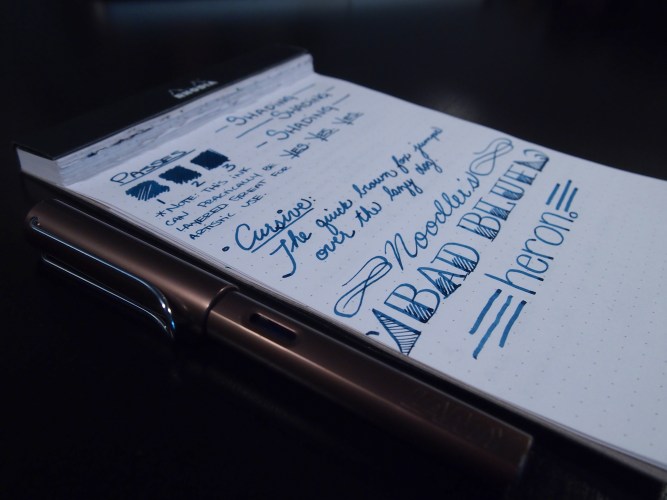 RHODIA
- SHADING -
- SHADING -
- SHADING -
YES YES YES
PASSES
1 2 3
*NOTE: THIS INK
CAN PRACTICALLY BE
LAYERED GREAT FOR
ARTISTIC USE.
• Cursive:
The quick brown fox jumps
over the lazy dog
Noodler's
BAD BLUE
heron.